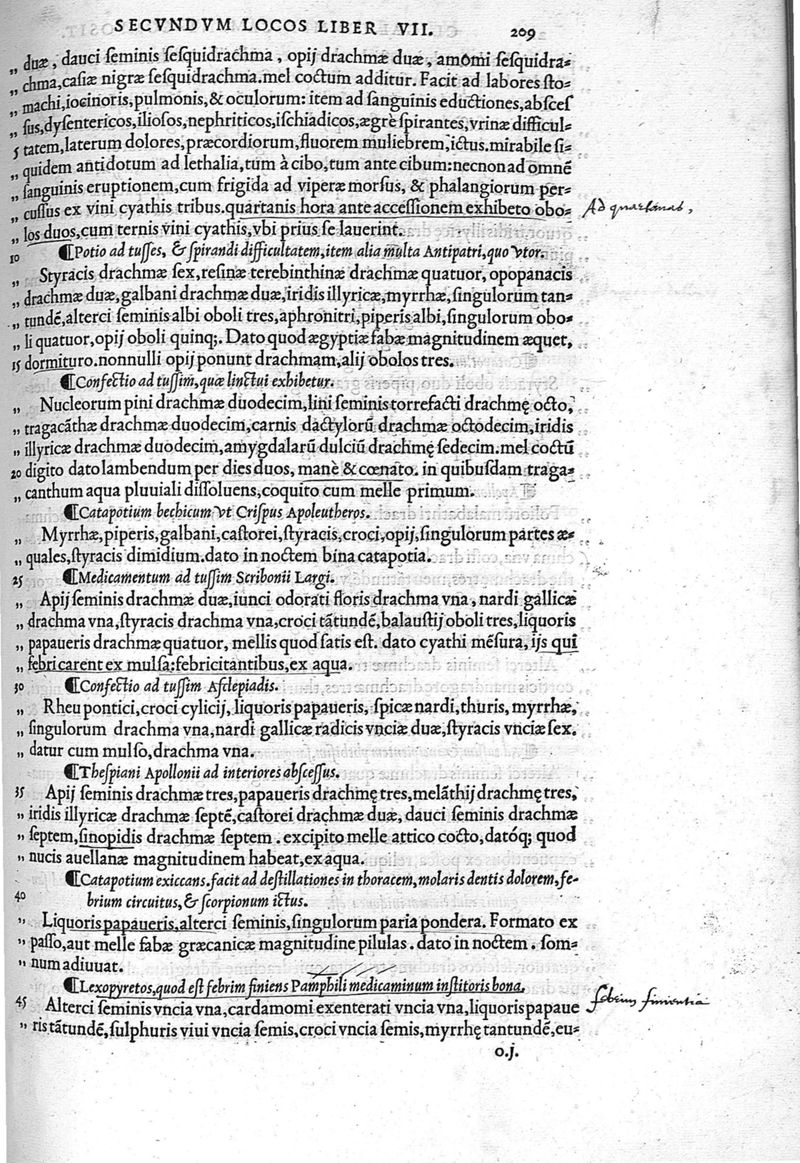 SECVNDVM LOCOS LIBER VII. 209
„ duæ, dauci seminis sesquidrachma, opij drachmæ duæ, amomi sesquidra-
„ chma, casiæ nigræ sesquidrachma. mel coctum additur. Facit ad labores sto-
„ machi, iocinoris, pulmonis, & oculorum: item ad sanguinis eductiones, absces
„ sus, dysentericos, iliosos, nephriticos, ischiadicos, ægrè spirantes, vrinæ difficul-
5 tatem, laterum dolores, præcordiorum, fluorem muliebrem, ictus. mirabile si-
„ quidem antidotum ad lethalia, tum à cibo, tum ante cibum: necnon ad omnē
„ sanguinis eruptionem, cum frigida ad viperæ morsus, & phalangiorum per-
„ cussus ex vini cyathis tribus. quartanis hora ante accessionem exhibeto obo- Ad quartanas,
„ los duos, cum ternis vini cyathis, vbi prius se lauerint.
10 ¶Potio ad tusses, & spirandi difficultatem, item alia multa Antipatri, quo vtor.
„ Styracis drachmæ sex, resinæ terebinthinæ drachmæ quatuor, opopanacis
„ drachmæ duæ, galbani drachmæ duæ, iridis illyricæ, myrrhæ, singulorum tan-
„ tundē, alterci seminis albi oboli tres, aphronitri, piperis albi, singulorum obo-
„ li quatuor, opij oboli quinq;. Dato quod ægyptiæ fabæ magnitudinem æquet,
15 dormituro. nonnulli opij ponunt drachmam, alij obolos tres.
¶Confectio ad tussim, quæ linctui exhibetur.
„ Nucleorum pini drachmæ duodecim, lini seminis torrefacti drachmę octo,
„ tragacāthæ drachmæ duodecim, carnis dactylorū drachmæ octodecim, iridis
„ illyricæ drachmæ duodecim, amygdalarū dulciū drachmę sedecim. mel coctū
20 digito dato lambendum per dies duos, manè & cœnato. in quibusdam traga-
„ canthum aqua pluuiali dissoluens, coquito cum melle primum.
¶Catapotium bechicum vt Crispus Apoleutheros.
„ Myrrhæ, piperis, galbani, castorei, styracis, croci, opij, singulorum partes æ-
„ quales, styracis dimidium. dato in noctem bina catapotia.
25 ¶Medicamentum ad tussim Scribonii Largi.
„ Apij seminis drachmæ duæ, iunci odorati floris drachma vna, nardi gallicæ
„ drachma vna, styracis drachma vna, croci tātundē, balaustij oboli tres, liquoris
„ papaueris drachmæ quatuor, mellis quod satis est. dato cyathi mēsura, ijs qui
„ febri carent ex mulsa: febricitantibus, ex aqua.
30 ¶Confectio ad tussim Asclepiadis.
„ Rheu pontici, croci cylicij, liquoris papaueris, spicæ nardi, thuris, myrrhæ,
„ singulorum drachma vna, nardi gallicæ radicis vnciæ duæ, styracis vnciæ sex.
„ datur cum mulso, drachma vna.
¶Thespiani Apollonii ad interiores abscessus.
35 Apij seminis drachmæ tres, papaueris drachmę tres, melāthij drachmę tres,
„ iridis illyricæ drachmæ septē, castorei drachmæ duæ, dauci seminis drachmæ
„ septem, sinopidis drachmæ septem. excipito melle attico cocto, datóq; quod
„ nucis auellanæ magnitudinem habeat, ex aqua.
¶Catapotium exiccans. facit ad destillationes in thoracem, molaris dentis dolorem, fe-
40 brium circuitus, & scorpionum ictus.
„ Liquoris papaueris, alterci seminis, singulorum paria pondera. Formato ex
„ passo, aut melle fabæ græcanicæ magnitudine pilulas. dato in noctem. som-
„ num adiuuat.
¶Lexopyretos, quod est febrim finiens Pamphili medicaminum institoris bona.
45 Alterci seminis vncia vna, cardamomi exenterati vncia vna, liquoris papaue febrim finientia
„ ris tātundē, sulphuris viui vncia semis, croci vncia semis, myrrhę tantundē, eu-
o.j.